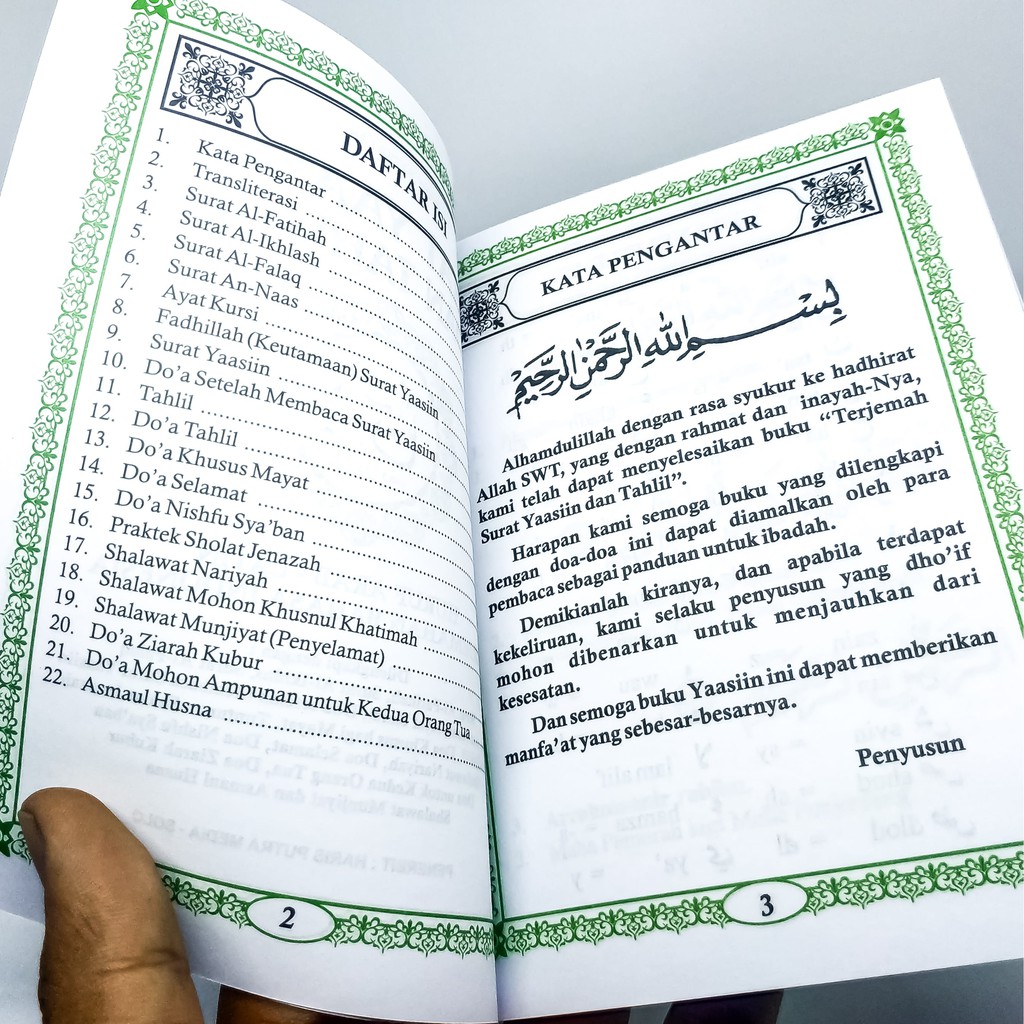 DAFTAR ISI
1. Kata Pengantar
2. Transliterasi
3. Surat Al-Fatihah
4. Surat Al-Ikhlash
5. Surat Al-Falaq
6. Surat An-Naas
7. Ayat Kursi
8. Fadhillah (Keutamaan) Surat Yaasiin
9. Surat Yaasiin
10. Do'a Setelah Membaca Surat Yaasiin
11. Tahlil
12. Do'a Tahlil
13. Do'a Khusus Mayat
14. Do'a Selamat
15. Do'a Nishfu Sya'ban
16. Praktek Sholat Jenazah
17. Shalawat Nariyah
18. Shalawat Mohon Khusnul Khatimah
19. Shalawat Munjiyat (Penyelamat)
20. Do'a Ziarah Kubur
21. Do'a Mohon Ampunan untuk Kedua Orang Tua
22. Asmaul Husna
2
KATA PENGANTAR
بِسْمِ اللهِ الرَّحْمٰنِ الرَّحِيْمِ
Alhamdulillah dengan rasa syukur ke hadhirat
Allah SWT, yang dengan rahmat dan inayah-Nya,
kami telah dapat menyelesaikan buku "Terjemah
Surat Yaasiin dan Tahlil".
Harapan kami semoga buku yang dilengkapi
dengan doa-doa ini dapat diamalkan oleh para
pembaca sebagai panduan untuk ibadah.
Demikianlah kiranya, dan apabila terdapat
kekeliruan, kami selaku penyusun yang dho'if
mohon dibenarkan untuk menjauhkan dari
kesesatan.
Dan semoga buku Yaasiin ini dapat memberikan
manfa'at yang sebesar-besarnya.
Penyusun
3